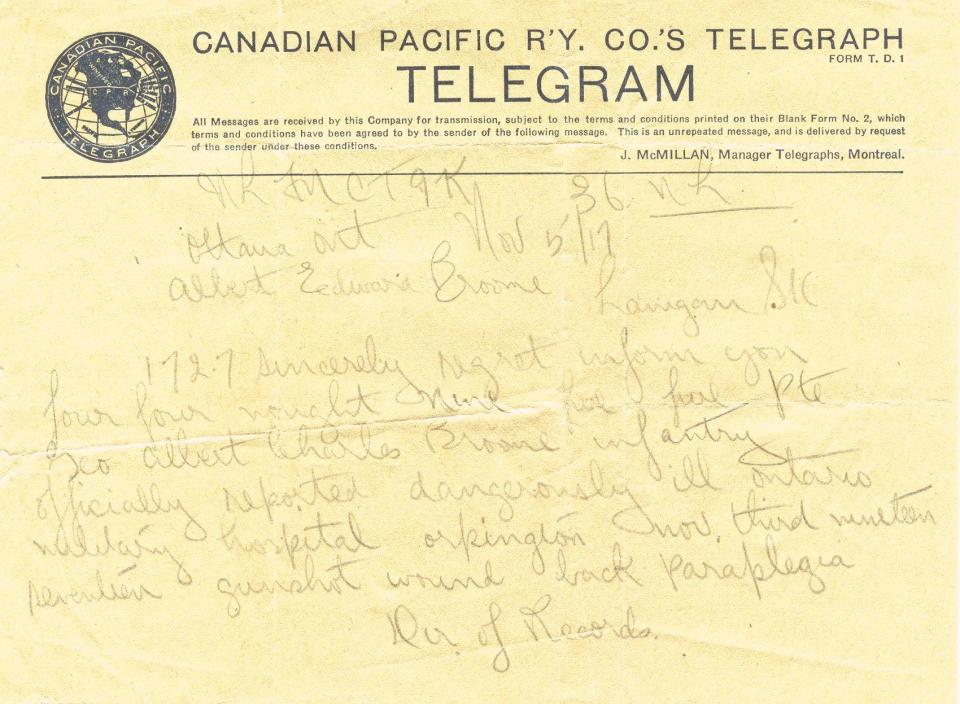 CANADIAN PACIFIC R'Y. CO.'S TELEGRAPH
FORM T. D. 1
TELEGRAM
CANADIAN PACIFIC
C.P.R.
TELEGRAPH
All Messages are received by this Company for transmission, subject to the terms and conditions printed on their Blank Form No. 2, which
terms and conditions have been agreed to by the sender of the following message. This is an unrepeated message, and is delivered by request
of the sender under these conditions.
J. McMILLAN, Manager Telegraphs, Montreal.
36 NL
Ottawa Ont Nov 5/17
Albert Edward Broome Lanigan SK
1727 sincerely regret inform you
four four nought nine Pte
Geo Albert Charles Broome infantry
officially reported dangerously ill ontario
military hospital orpington nov. third nineteen
seventeen gunshot wound back paraplegia
Dir. of Records.